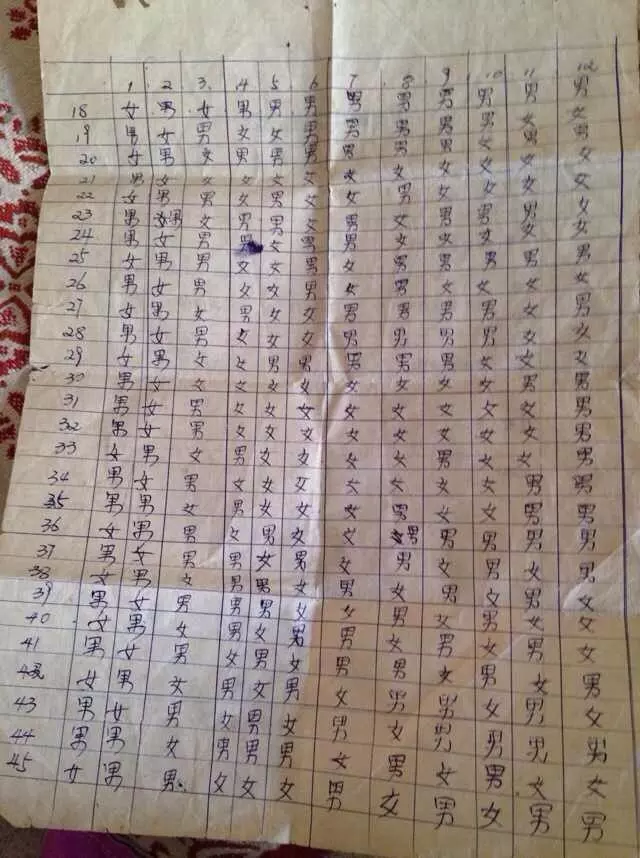 1 2 3 4 5 6 7 8 9 10 11 12
18 女 男 女 男 男 男 男 男 男 男 男 男
19 男 女 男 女 女 男 男 男 男 男 女 女
20 女 男 女 男 男 男 男 男 男 女 男 男
21 男 女 女 女 女 女 女 女 女 女 女 女
22 女 男 女 男 男 女 女 男 女 女 女 女
23 男 女男 女 男 男 女 男 女 男 男 男 女
24 男 女 男 男 女 男 男 女 女 女 女 女
25 女 男 男 女 女 男 女 男 男 男 男 男
26 男 女 男 女 女 男 女 男 女 女 女 女
27 女 男 女 男 女 女 男 男 男 男 女 男
28 男 女 男 女 女 女 男 男 男 男 女 女
29 女 男 女 女 男 男 男 男 男 女 女 女
30 男 女 女 女 女 女 女 女 女 女 男 男
31 男 女 男 女 女 女 女 女 女 女 女 男
32 男 女 男 女 女 女 女 女 女 女 女 男
33 女 男 女 男 女 女 女 女 男 女 女 男
34 男 女 男 女 女 女 女 女 女 女 男 男
35 男 男 女 男 女 女 女 男 女 女 男 男
36 女 男 男 女 男 女 女 女男 男 男 男 男
37 男 女 男 男 女 男 女 男 女 男 女 男
38 女 男 女 男 男 女 男 女 男 女 男 女
39 男 女 男 男 男 女 女 男 女 男 女 女
40 女 男 女 男 女 男 男 女 男 女 男 女
41 男 女 男 女 男 女 男 男 女 男 女 男
42 女 男 女 男 女 男 女 男 男 女 男 女
43 男 女 男 女 男 女 男 女 男 男 男 男
44 男 男 女 男 男 男 女 男 女 男 女 女
45 女 男 男 女 女 女 男 女 男 女 男 男